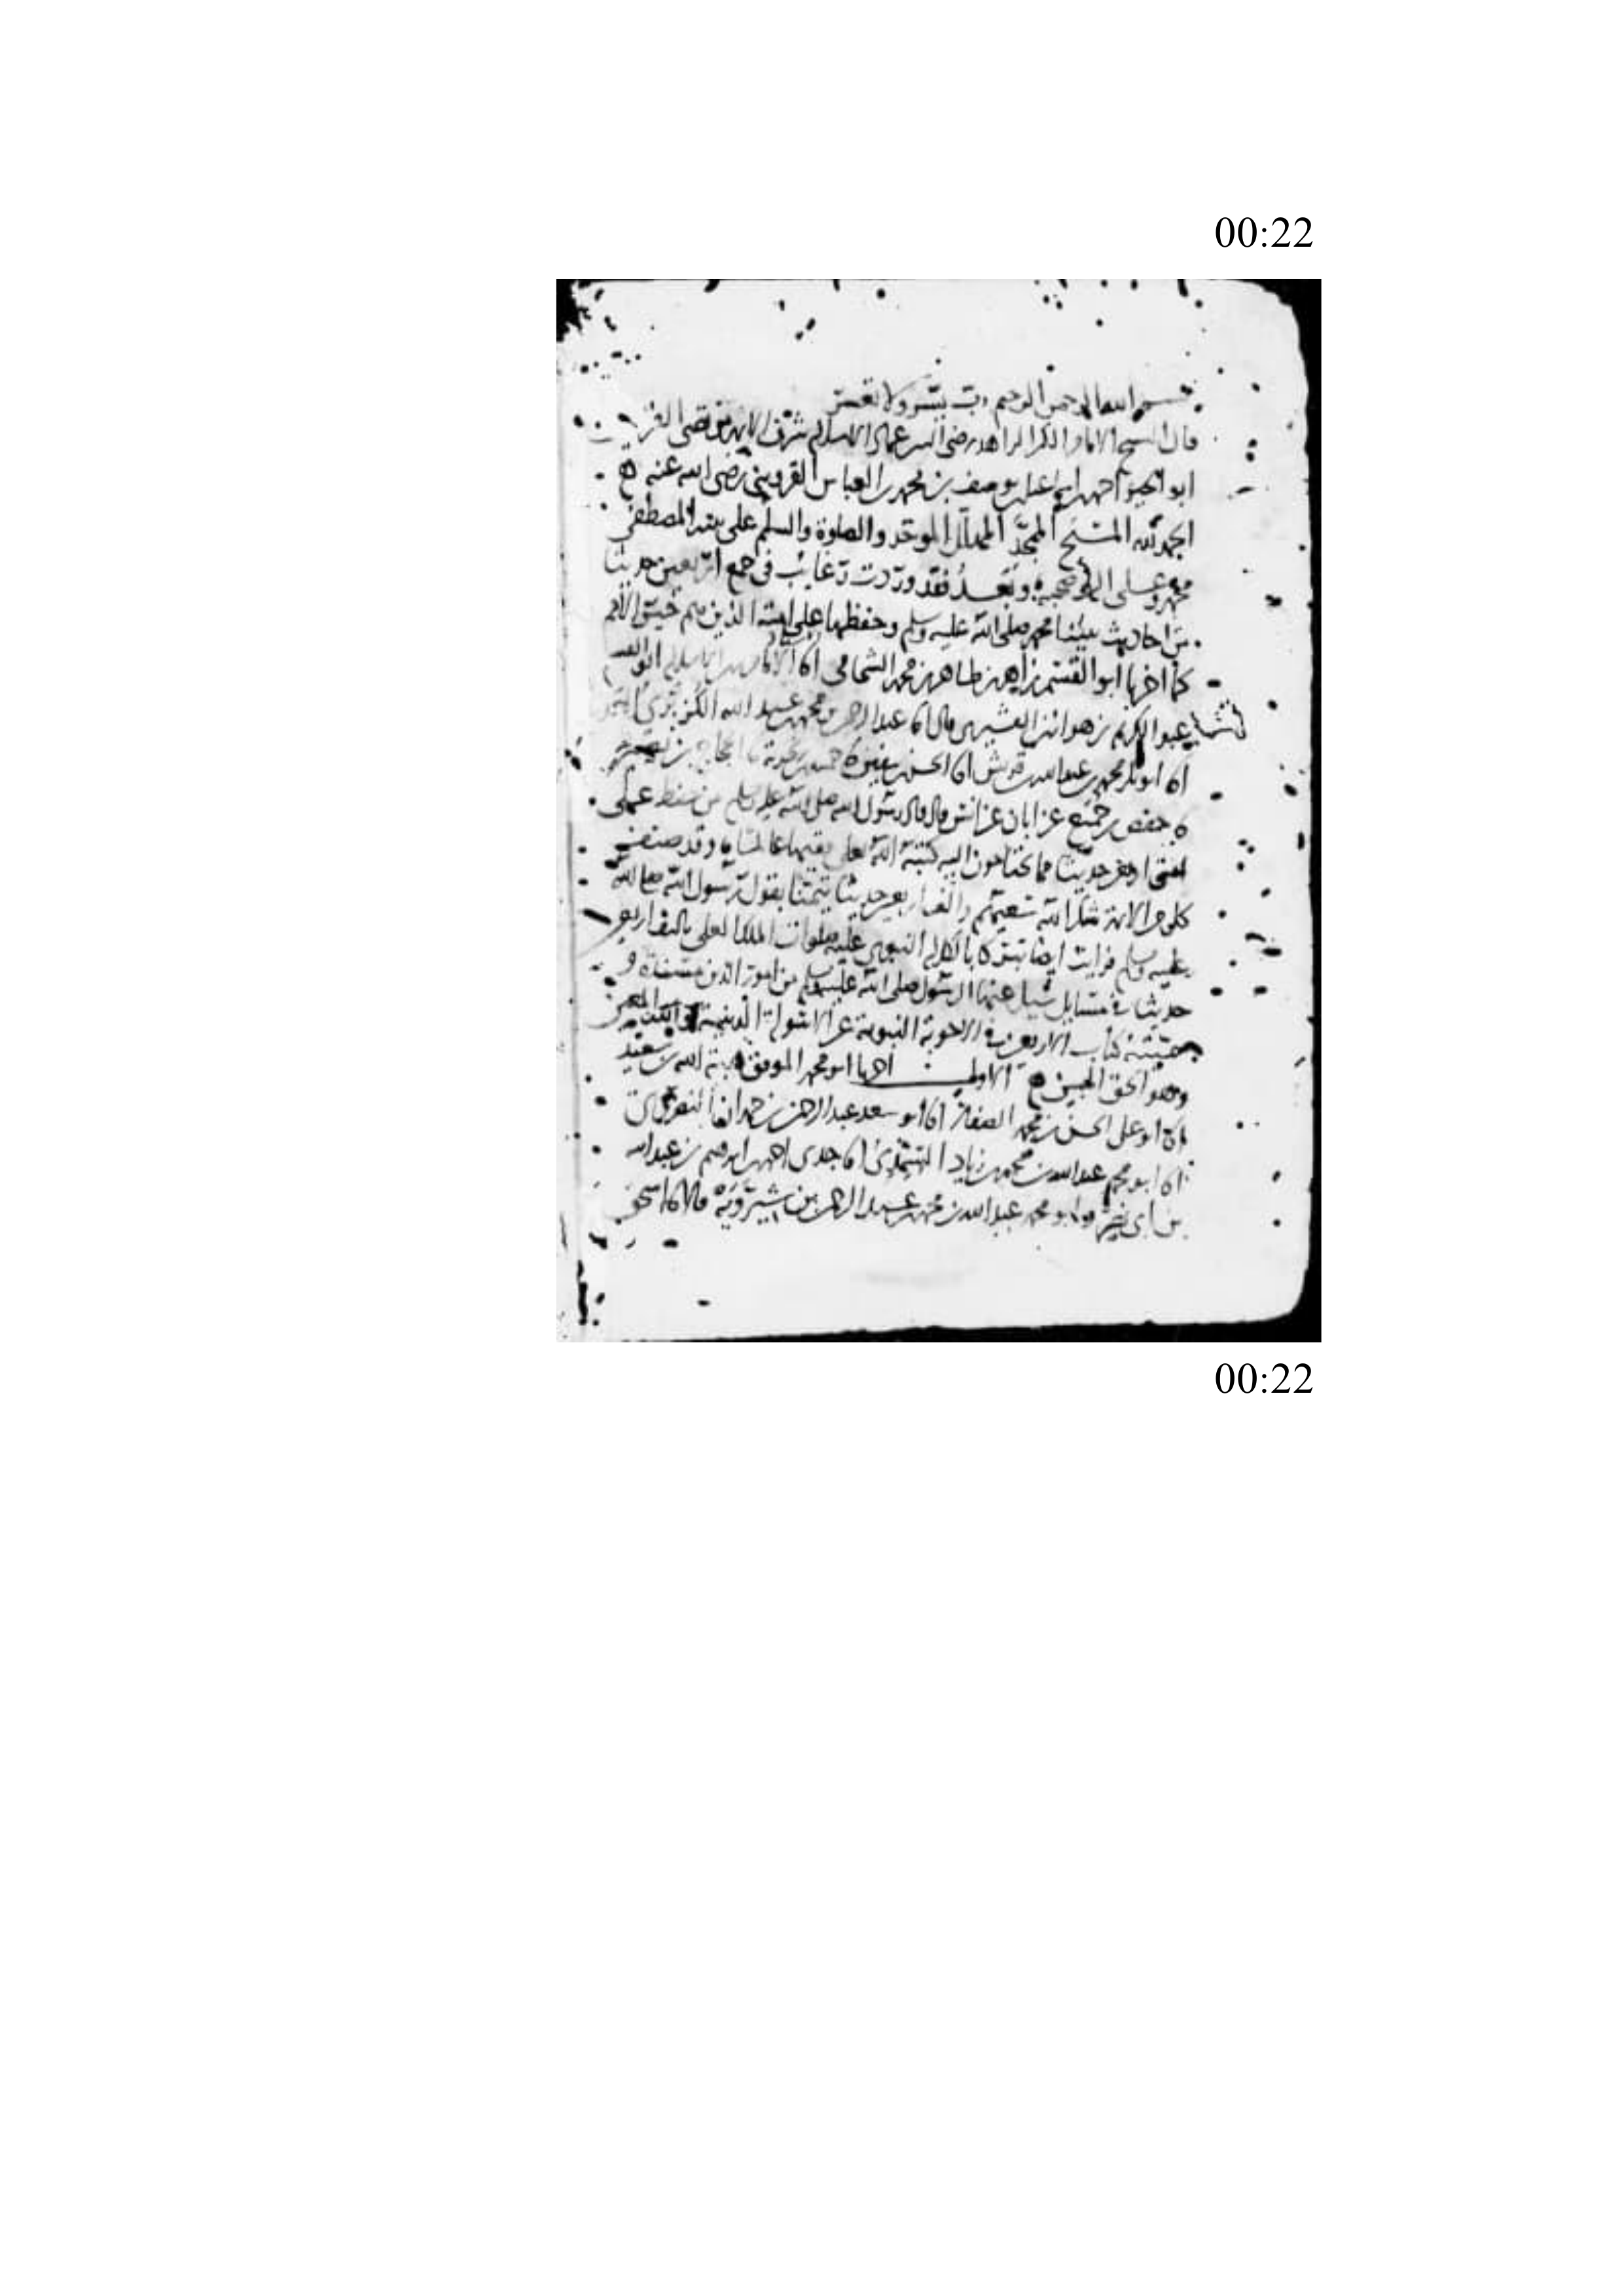 00:22
بسم الله الرحمن الرحيم رب يسر ولا تعسر
قال الشيخ الامام الزاهد رضى الدين عماد الاسلام شرف الايمة
ابو الخير احمد بن اسمعيل بن يوسف بن محمد بن العباس القزوينى رضى الله عنه
الحمد لله المسبح الممجد المهلل الموحد والصلوة والسلم على نبيه المصطفى
محمد وعلى اله وصحبه وبعد فقد وردت رغائب فى جمع اربعين حديثا
من احاديث نبينا محمد صلى الله عليه وسلم وحفظها على امته الذين هم خير الامم
كما اخبرنا ابو القسم زاهر بن طاهر بن محمد الشحامى انا الامام ابو القسم
عبد الكريم بن هوازن القشيرى قال انا عبد الرحمن بن محمد بن عبد الله
انا ابو بكر محمد بن عبد الله بن قريش انا الحسن بن سفين الحجاج بن نصير
حفص بن جميع عن ابان عن انس قال قال رسول الله صلى الله عليه وسلم من حفظ على
امتى اربعين حديثا مما يحتاجون اليه كتبه الله تعلى فقيها عالما وقد صنف
كل من الايمة شكر الله سعيهم والف اربعين حديثا تيمنا بقول رسول الله صلى الله
عليه وسلم فرايت ايضا تبركا بالكلام النبوى عليه صلوات الملك العلى تاليف اربعين
حديثا فى مسايل سيل عنها الرسول صلى الله عليه وسلم من امور الدين مسندة و
سميته كتاب الاربعين فى الاجوبة النبوية عن الاسولة الدينية والله المعين
وهو الحق المبين الاول اخبرنا ابو محمد الموفق هبة الله بن سعيد
انا ابو على الحسن بن محمد الصفار انا ابو سعد عبد الرحمن بن حمدان النصروى
انا ابو محمد عبد الله بن محمد بن زياد السمذى انا جدى احمد بن ابرهيم بن عبد الله
وابو محمد عبد الله بن محمد بن عبد الرحمن بن شيرويه قالا انا اسحق
00:22